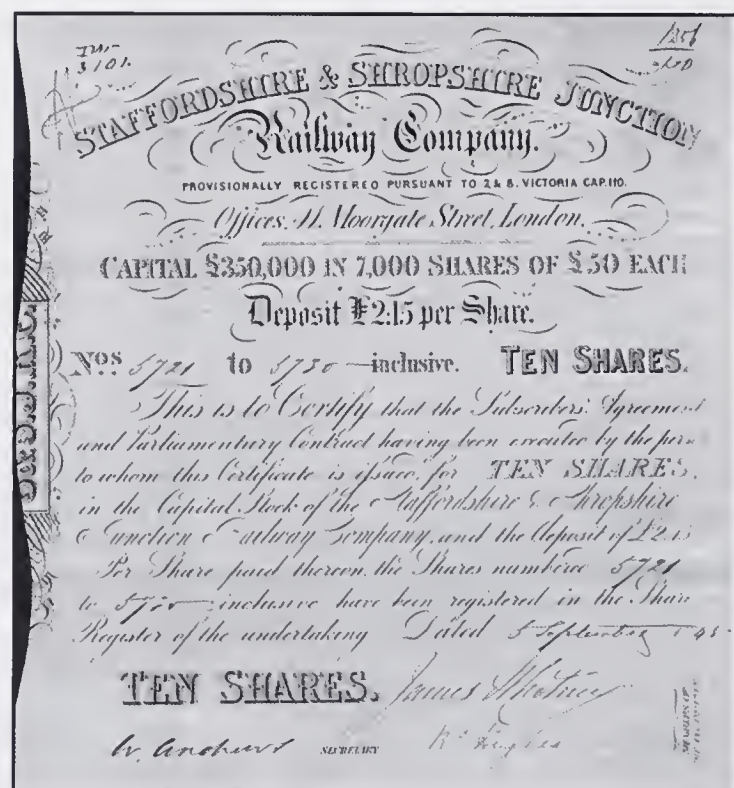 STAFFORDSHIRE & SHROPSHIRE JUNCTION
Railway Company.
PROVISIONALLY REGISTERED PURSUANT TO 7 & 8. VICTORIA CAP. 110.
Offices, 41, Moorgate Street, London.
CAPITAL £350,000 IN 7,000 SHARES OF £50 EACH
Deposit £2:15 per Share.
Nos. 5721 to 5730 — inclusive. TEN SHARES.
This is to Certify that the Subscribers' Agreement
and Parliamentary Contract having been executed by the
to whom this Certificate is issued, for TEN SHARES.
in the Capital Stock of the Staffordshire & Shropshire
Junction Railway Company, and the deposit of £2.15
Per Share paid thereon, the Shares numbered 5721
to 5730 inclusive have been registered in the Share
Register of the undertaking Dated 5 September
TEN SHARES. James
W. Andrews SECRETARY